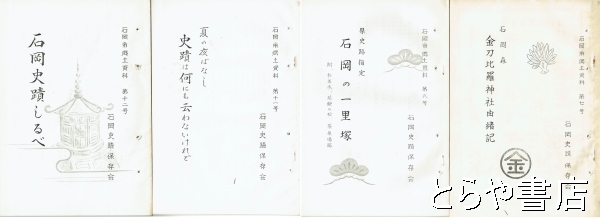 石岡市郷土資料 第十二号
石岡史蹟しるべ
石岡史蹟保存会
石岡市郷土資料 第十一号
夏の夜ばなし
史蹟は何にも云わないけれど
石岡史蹟保存会
石岡市郷土資料 第八号
県史跡指定
石岡の一里塚
石岡史蹟保存会
石岡市郷土資料 第七号
石岡森
金刀比羅神社由緒記
石岡史蹟保存会
金
とらや書店